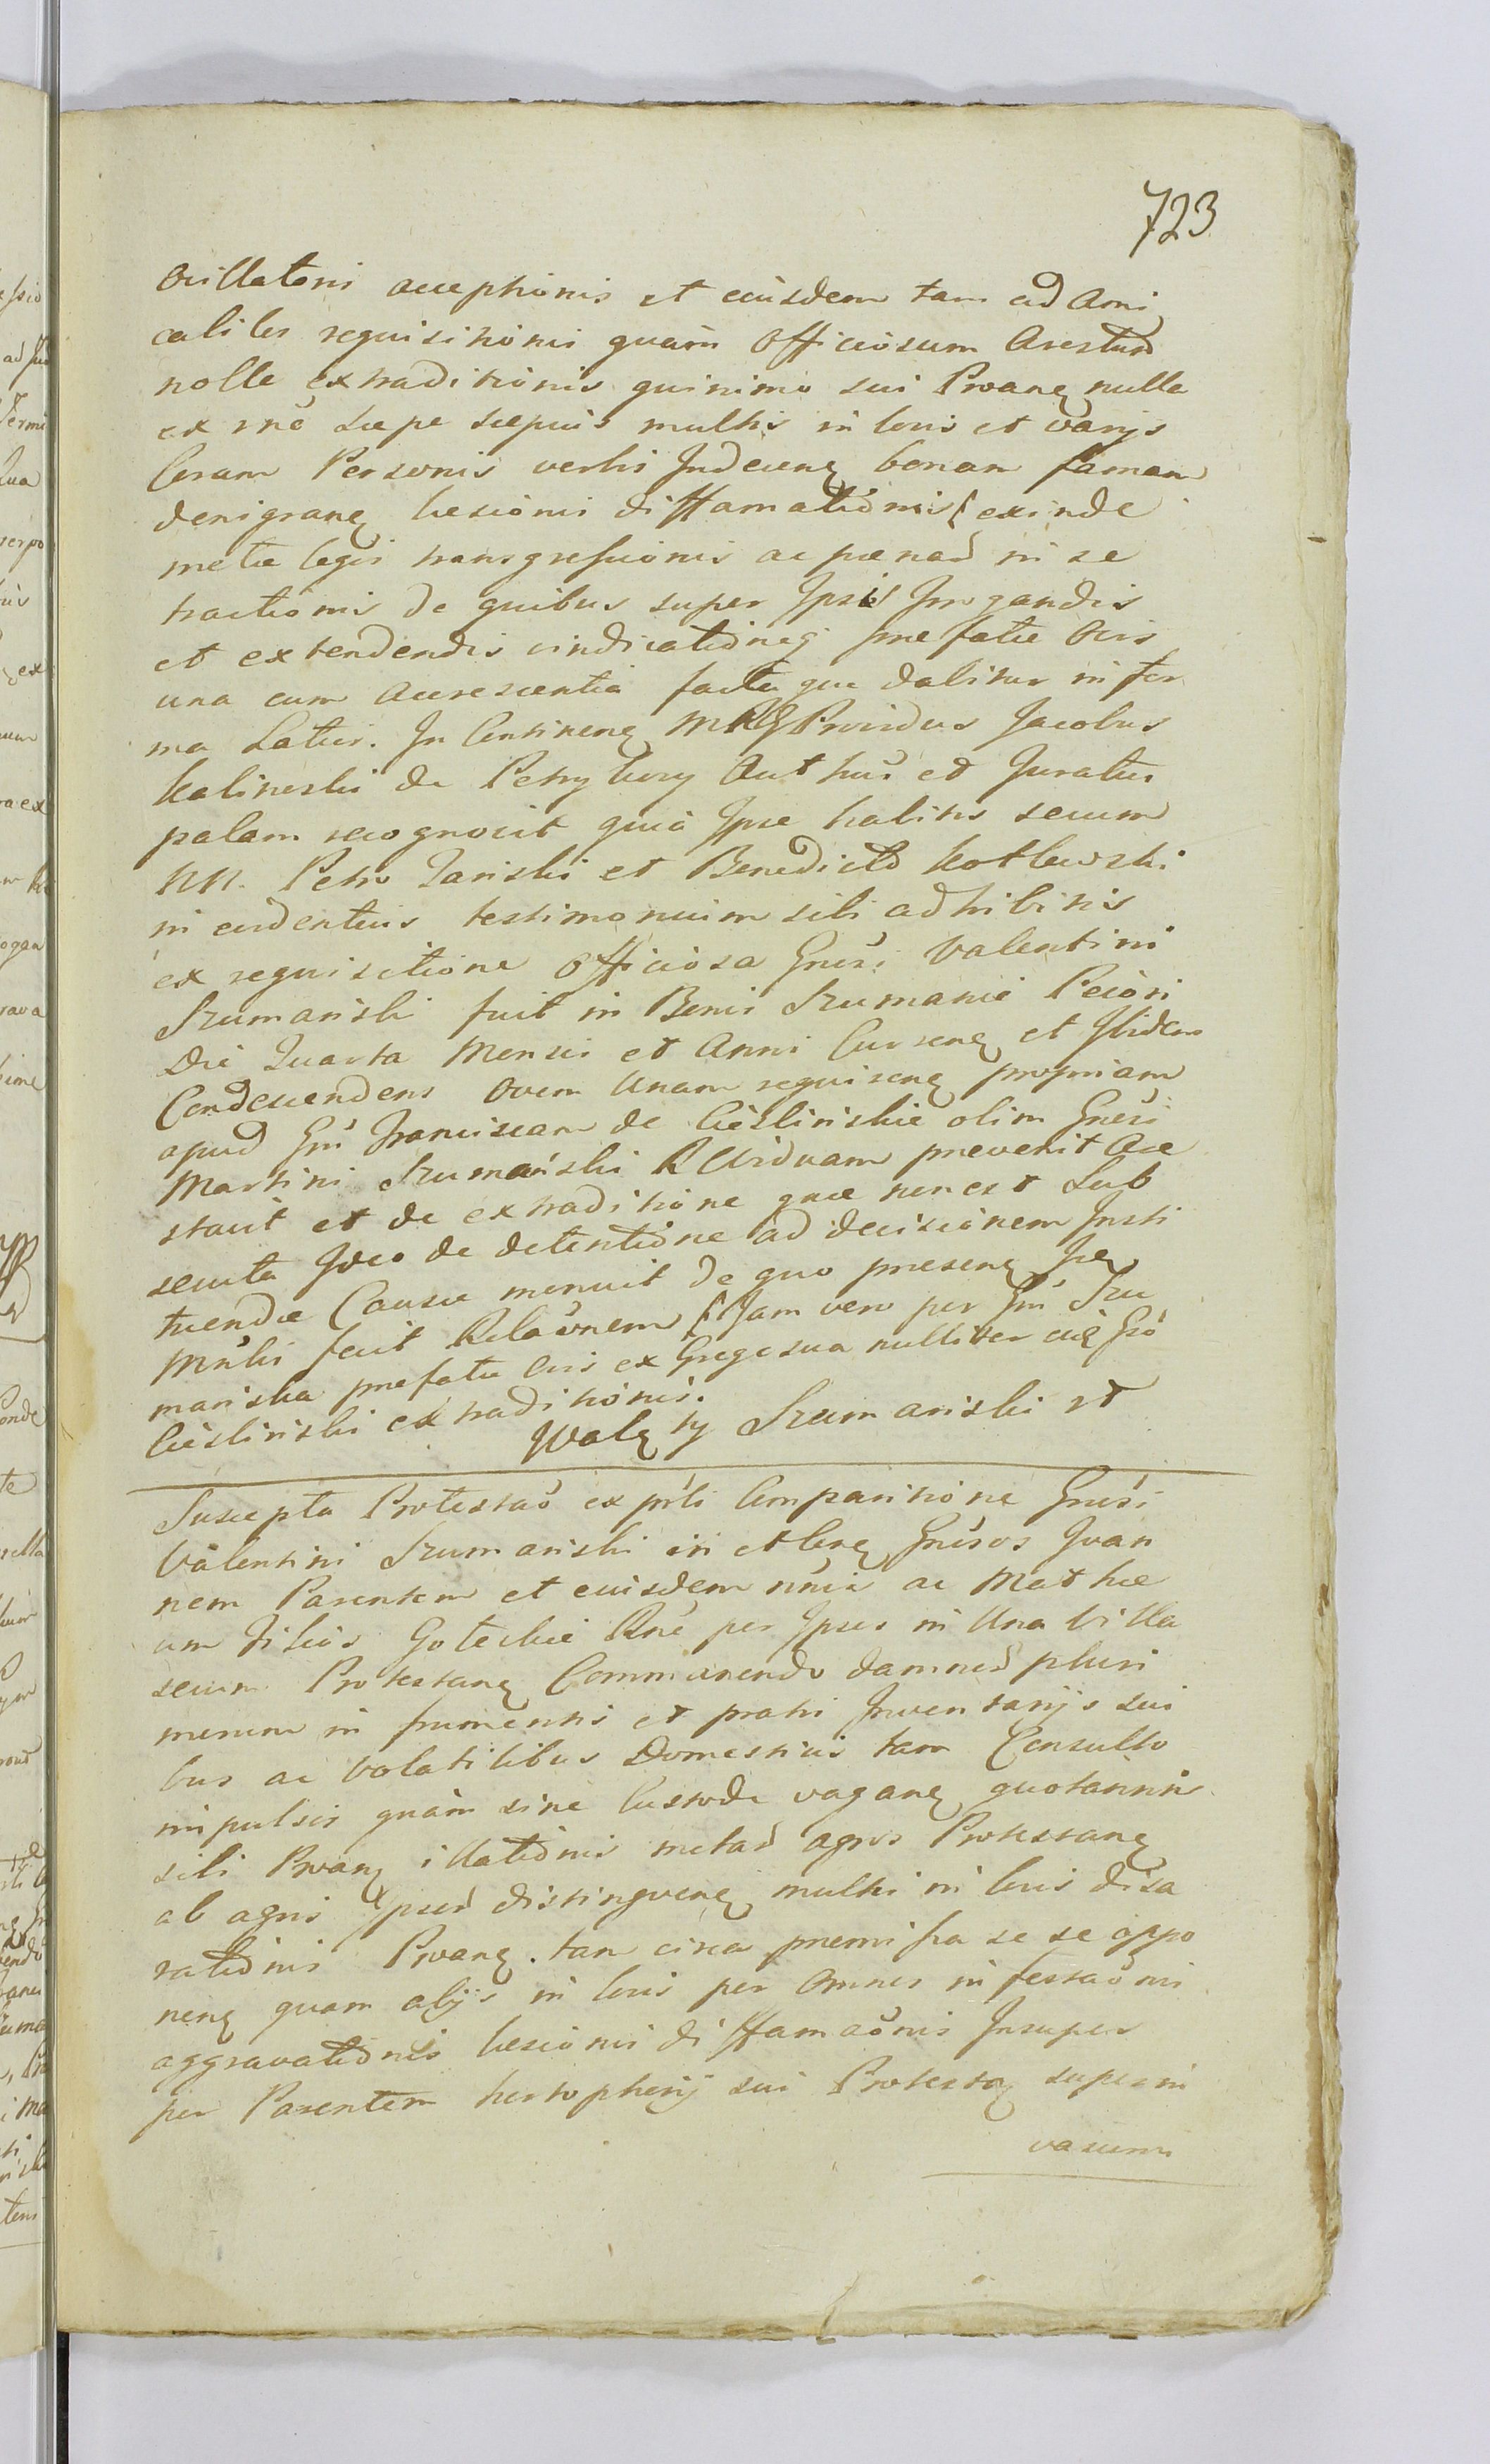 723
Ovillatoris acceptionis et eiusdem tam ad Ami
cabiles requisitionis quam Officiosum Arestum
nolle extraditionis quinimo sui Ptoanę nulla
ex rnē sæpe sæpius multis in locis et varijs
Coram Personis verbis Indecenę bonam famam
denigranę læsionis diffamationis exinde
metæ legis transgressionis ac pœnarum in se
tractionis de quibus super Ipsis Irrogandis
et extendendis vindicationeq præfatæ Ovis
una cum Accrescentia facta quæ dabitur in for
ma Latius. In Continenę MRG Providus Jacobus
Kalinoski de Petrykozy Authus et Juratus
palam recognovit quia Ipse habitis secum
NN. Petro Zaniski et Benedicto Kotlewski
in evidentius testimonium sibi adhibitis
ex requisitione Officiosa Gnēsi Valentini
Szumański fuit in Bonis Szumanie Pciōri
Die Quarta Mensis et Anni Cursenę et Ibidem
Condescendens Ovem Unam requisenę propriam
apud Gm̄ Franciscam de Cieślińskie olim Gnēsi
Martini Szumański R Viduam prevenit Are
stavit et de extraditione quæ non est Sub
secuta Ideo de detentione ad decisionem Insti
tuendæ Causæ monuit de quo præsenę
fecit Relaōnem Jam vero per Gm̄ Szu
mańska præfatæ Ovis ex Grege sua nulliter
Cieśliński extraditionis.
Walęty Szumański
Suscepta Protestaō ex pñti Comparitione Gnēsi
Valentini Szumański in et Cnę Gnēsos Joan
nem Parentem et eiusdem ac Mathæ
um Filios Goteckie Rnē per Ipsos in Una Villa
secum Protestanę Commanendo damnorum pluri
morum in frumentis et pratis Inventarijs sui
bus ac Volatilibus Domesticis tam Consulto
impulsis quàm sine Custode vaganę quotannis
sibi Ptoanę illationis metas agros Protestanę
ab agris Ipsorum distinguenę multis in locis disa
rationis Ptoanę. tam circa præmissa se se oppo
nenę quam alijs in locis per Omnes infestaōnis
aggravationis læsionis diffamaōnis Insuper
per Parentem sui Protestaę super in
vasum